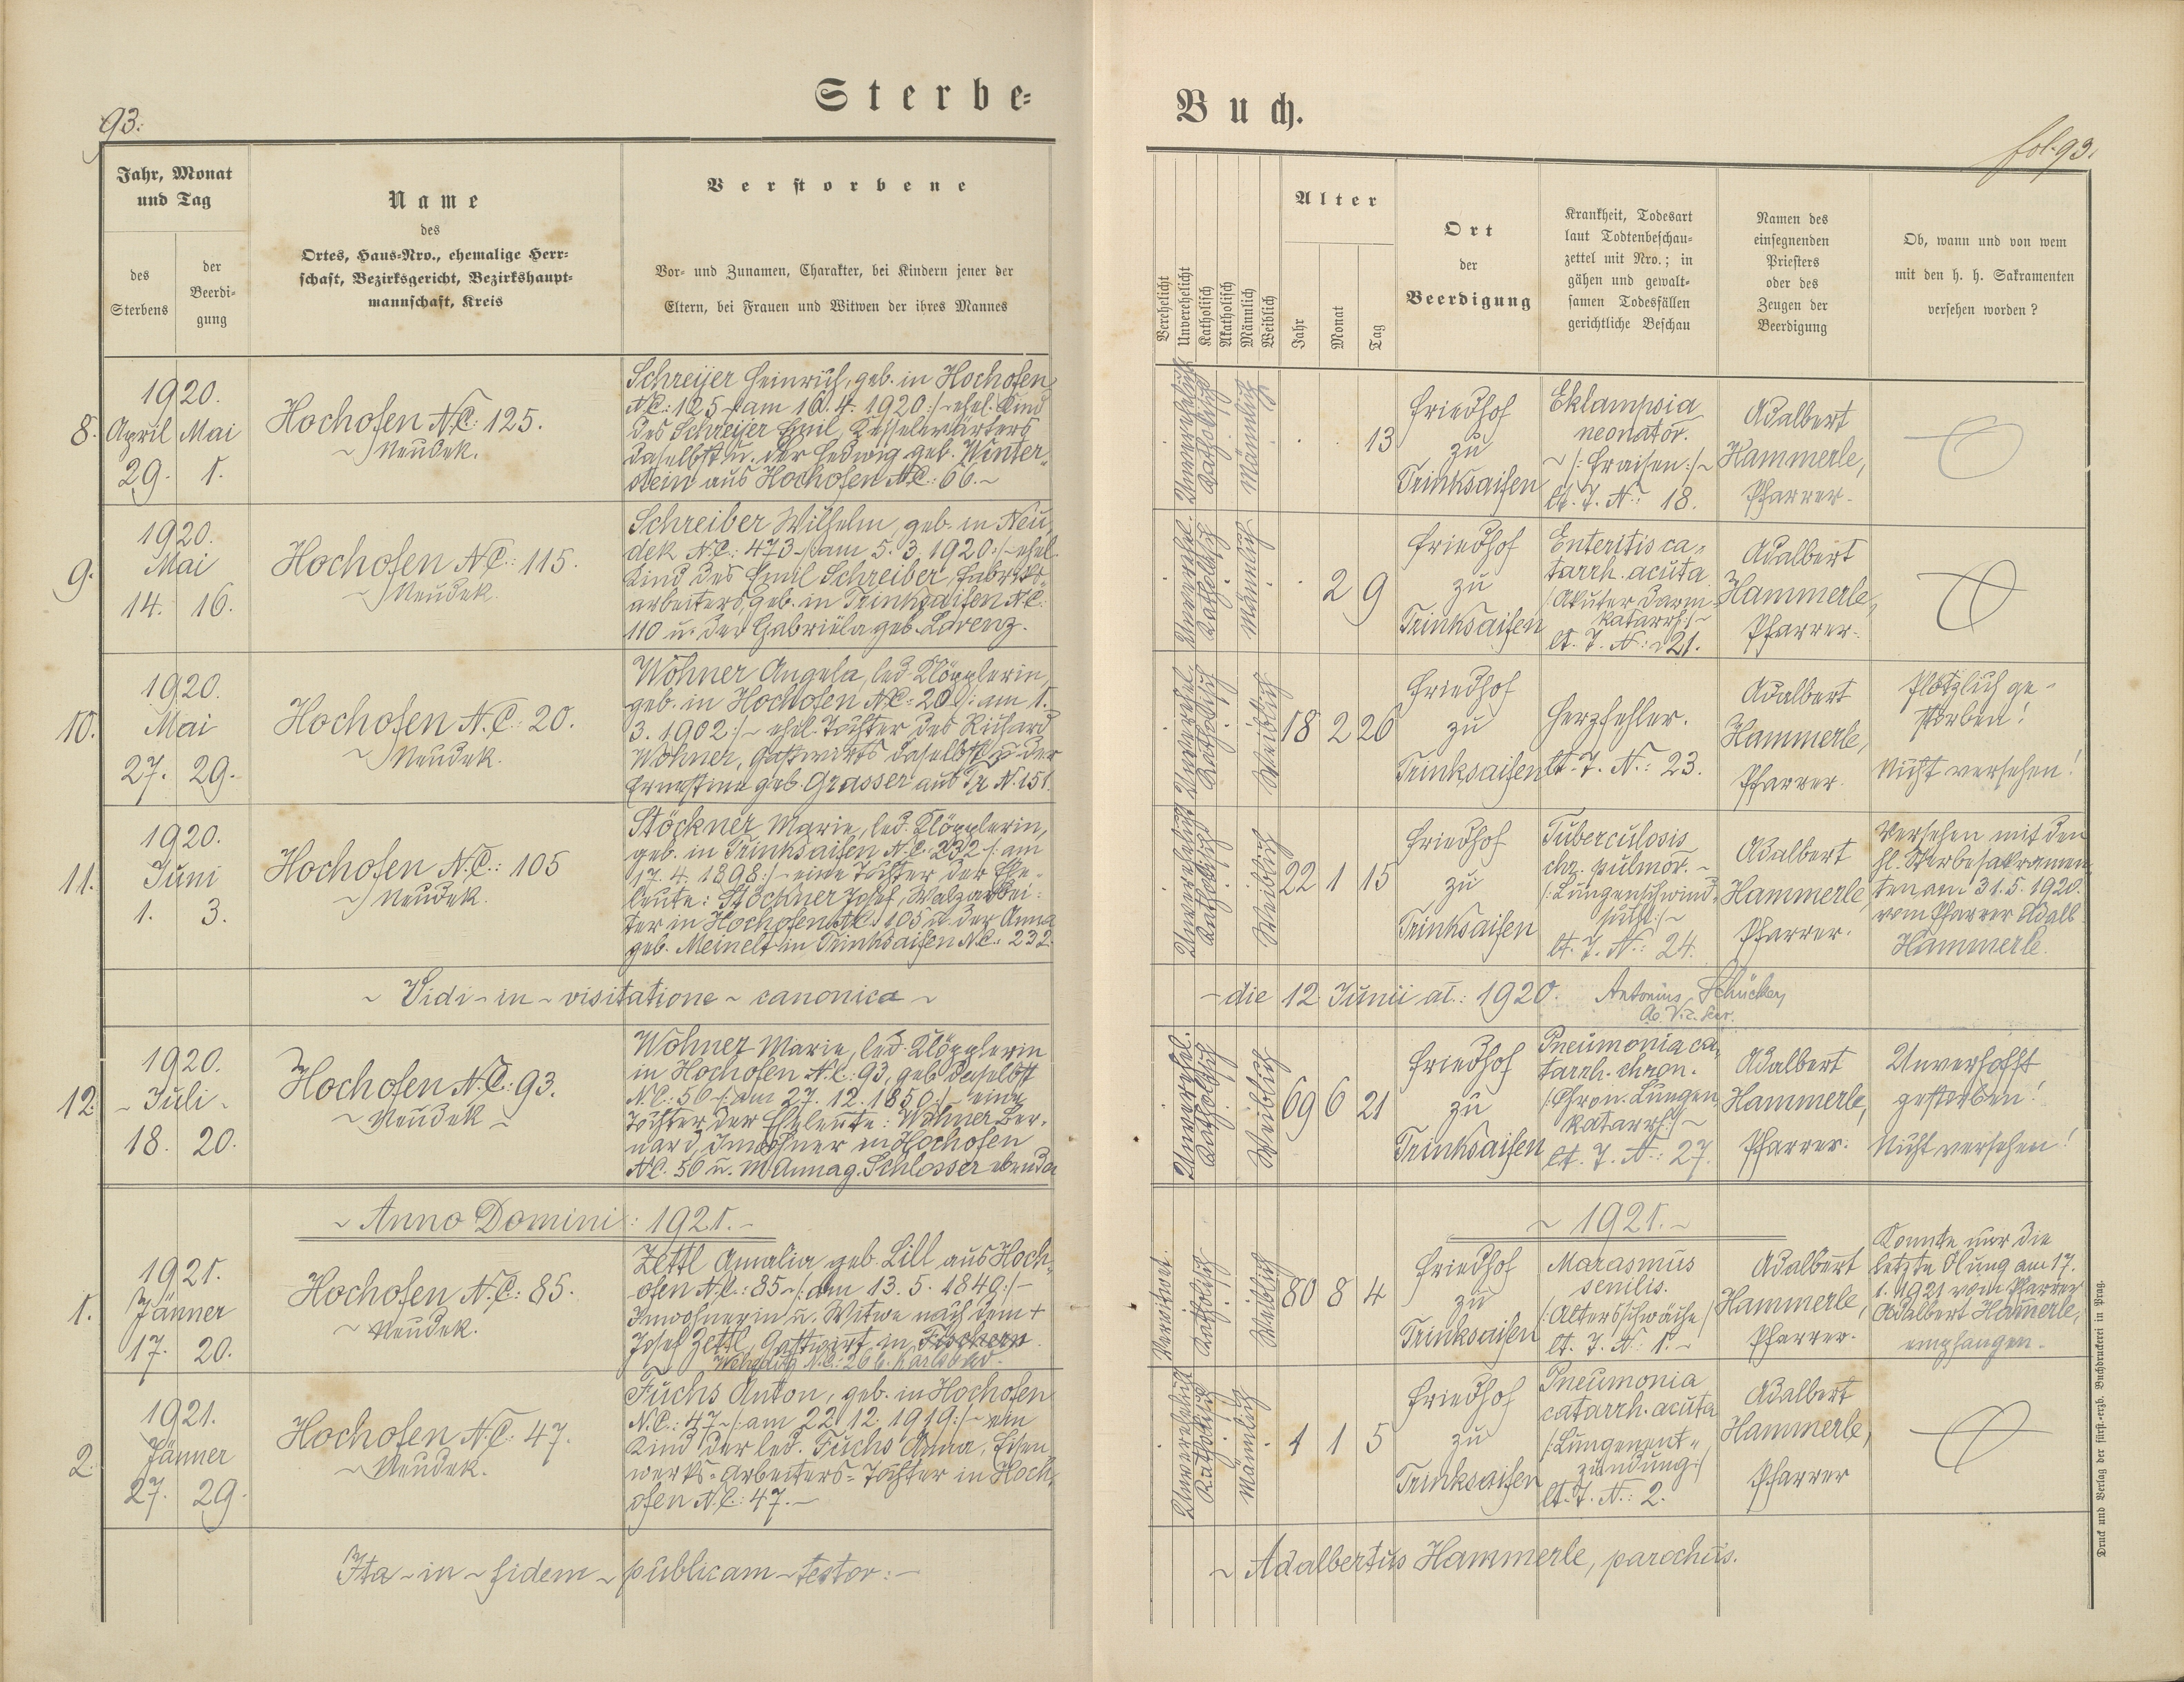 Sterbe-
93.
Jahr, Monat
und Tag
des
Sterbens
der
Beerdi-
gung
Name
des
Ortes, Haus-Nro., ehemalige Herr-
schaft, Bezirksgericht, Bezirkshaupt-
mannschaft, Kreis
Verstorbene
Vor- und Zunamen, Charakter, bei Kindern jener der
Eltern, bei Frauen und Witwen der ihres Mannes
8.
1920.
April Mai
29. 1.
Hochofen N.C: 125.
~ Neudek.
Schreijer Heinrich, geb. in Hochofen
N.C: 125 /:am 16.4.1920:/ ~ ehel. Kind
des Schreijer Emil, Kesselwärters
daselbst u. der Hedwig geb. Winter-
stein aus Hochofen N.C: 66.~
9.
1920.
Mai
14. 16.
Hochofen N.C: 115.
~ Neudek.
Schreiber Wilhelm, geb. in Neu-
dek N.C.: 473 ~/:am 5.3.1920:/~ ehel.
Kind des Emil Schreiber, Fabriks-
arbeiters, geb. in Trinksaifen N.C.
110 u. der Gabriela geb. Lorenz.
10.
1920.
Mai
27. 29.
Hochofen N.C: 20.
~ Neudek.
Wohner Angela, led. Klöpplerin,
geb. in Hochofen N.C: 20 /: am 1.
3. 1902:/~ ehel. Tochter des Richard
Wohner, Gastwirts daselbst u. der
Ernestina geb. Grasser aus Tr. N. 151.
11.
1920.
Juni
1. 3.
Hochofen N.C.: 105
~ Neudek.
Stöckner Marie, led. Klöpplerin,
geb. in Trinksaifen N.C. 232 /: am
17. 4. 1898:/~ eine Tochter der Ehe-
leute: Stöckner Josef, Walzarbei-
ter in Hochofen N.C. 105 u. der Anna
geb. Meinelt in Trinksaifen N.C.: 232.
~ Vidi ~ in ~ visitatione ~ canonica ~
12.
1920.
~ Juli ~
18. 20.
Hochofen N.C.: 93.
~ Neudek ~
Wohner Marie, led. Klöpplerin
in Hochofen N.C.: 93, geb. daselbst
N.C.: 50 ~/: am 27. 12. 1850:/~ eine
Tochter der Eheleute: Wohner Ber-
nard, Inwohner in Hochofen
N.C. 50 u. M. Anna g. Schlosser ebenda
~ Anno Domini: 1921.~
1.
1921.
Jänner
17. 20.
Hochofen N.C: 85.
~ Neudek.
Zettl Amalia geb. Lill aus Hoch-
ofen N.C.: 85 ~/: am 13. 5. 1840:/~
Inwohnerin u. Witwe nach dem +
Josef Zettl, Gastwirt in
N.C.: 266. Karlsbad.
2.
1921.
Jänner
27. 29.
Hochofen N.C: 47.
~ Neudek.
Fuchs Anton, geb. in Hochofen
N.C.: 47 ~/: am 22. 12. 1919:/~ ein
Kind der led. Fuchs Anna, Eisen-
werks-Arbeiters-Tochter in Hoch-
ofen N.C.: 47.~
Ita ~ in ~ fidem ~ publicam ~ testor: ~
Buch.
fol. 93.
Verehelicht
Unverehelicht
Katholisch
Akatholisch
Männlich
Weiblich
Alter
Jahr
Monat
Tag
Ort
der
Beerdigung
Krankheit, Todesart
laut Todtenbeschau-
zettel mit Nro.; in
gähen und gewalt-
samen Todesfällen
gerichtliche Beschau
Namen des
einsegnenden
Priesters
oder des
Zeugen der
Beerdigung
Ob, wann und von wem
mit den h. h. Sakramenten
versehen worden?
Unverehelicht
Katholisch
Männlich
13
Friedhof
zu
Trinksaifen
Eklampsia
neonator.
~ /: Fraisen :/ ~
lt. T. N.: 18.
Adalbert
Hammerle,
Pfarrer.
Unverehel.
Katholisch
Männlich
2 9
Friedhof
zu
Trinksaifen
Enteritis ca-
tarrh. acuta
/: Akuter Darm-
katarrh :/~
lt. T. N.: 21.
Adalbert
Hammerle,
Pfarrer.
Unverehel.
Katholisch
Weiblich
18 2 26
Friedhof
zu
Trinksaifen
Herzfehler.
lt. T. N.: 23.
Adalbert
Hammerle,
Pfarrer.
Plötzlich ge-
storben!
Nicht versehen!
Unverehelicht
Katholisch
Weiblich
22 1 15
Friedhof
zu
Trinksaifen
Tuberculosis
chr. pulmor. ~
/: Lungenschwind-
sucht :/~
lt. T. N.: 24.
Adalbert
Hammerle,
Pfarrer.
Versehen mit den
hl. Sterbesakramen-
ten am 31. 5. 1920.
vom Pfarrer Adalb.
Hammerle.
~ die 12. Junii ai.: 1920. Antonius Schücker,
Unverehel.
Katholisch
Weiblich
69 6 21
Friedhof
zu
Trinksaifen
Pneumonia ca-
tarrh. chron.
/: Chron. Lungen-
katarrh :/~
lt. T. N.: 27.
Adalbert
Hammerle,
Pfarrer.
Unverhofft
gestorben!
Nicht versehen!
~ 1921. ~
Verwitwet.
Katholisch
Weiblich
80 8 4
Friedhof
zu
Trinksaifen
Marasmus
senilis.
/: Altersschwäche /
lt. T. N: 1. ~
Adalbert
Hammerle,
Pfarrer.
Konnte nur die
letzte Ölung am 17.
1. 1921 vom Pfarrer
Adalbert Hamerle,
empfangen.
Unverehelicht
Katholisch
Männlich
1 1 5
Friedhof
zu
Trinksaifen
Pneumonia
catarrh. acuta
/: Lungenent-
zündung :/
lt. T. N.: 2.
Adalbert
Hammerle,
Pfarrer
~ Adalbertus Hammerle, parochus.
Druck und Verlag der fürst.-erzb. Buchdruckerei in Prag.